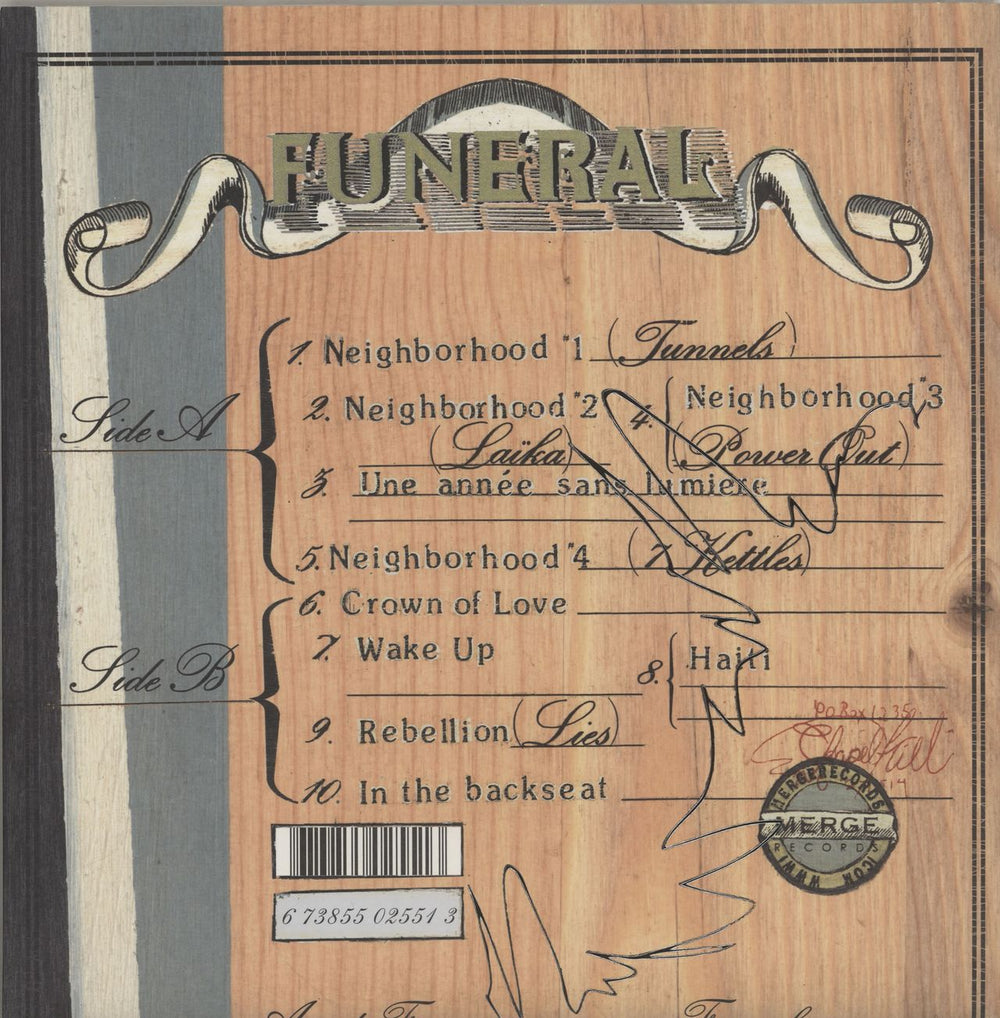 FUNERAL
Side A
1. Neighborhood #1 (Tunnels)
2. Neighborhood #2
(Laïka)
3. Une année sans lumiere
4. Neighborhood #3
(Power Out)
5. Neighborhood #4 (7 Kettles)
Side B
6. Crown of Love
7. Wake Up
8. Haiti
9. Rebellion (Lies)
10. In the backseat
PO Box
Chapel Hill
MERGERECORDS
MERGE
RECORDS
6 73855 02551 3